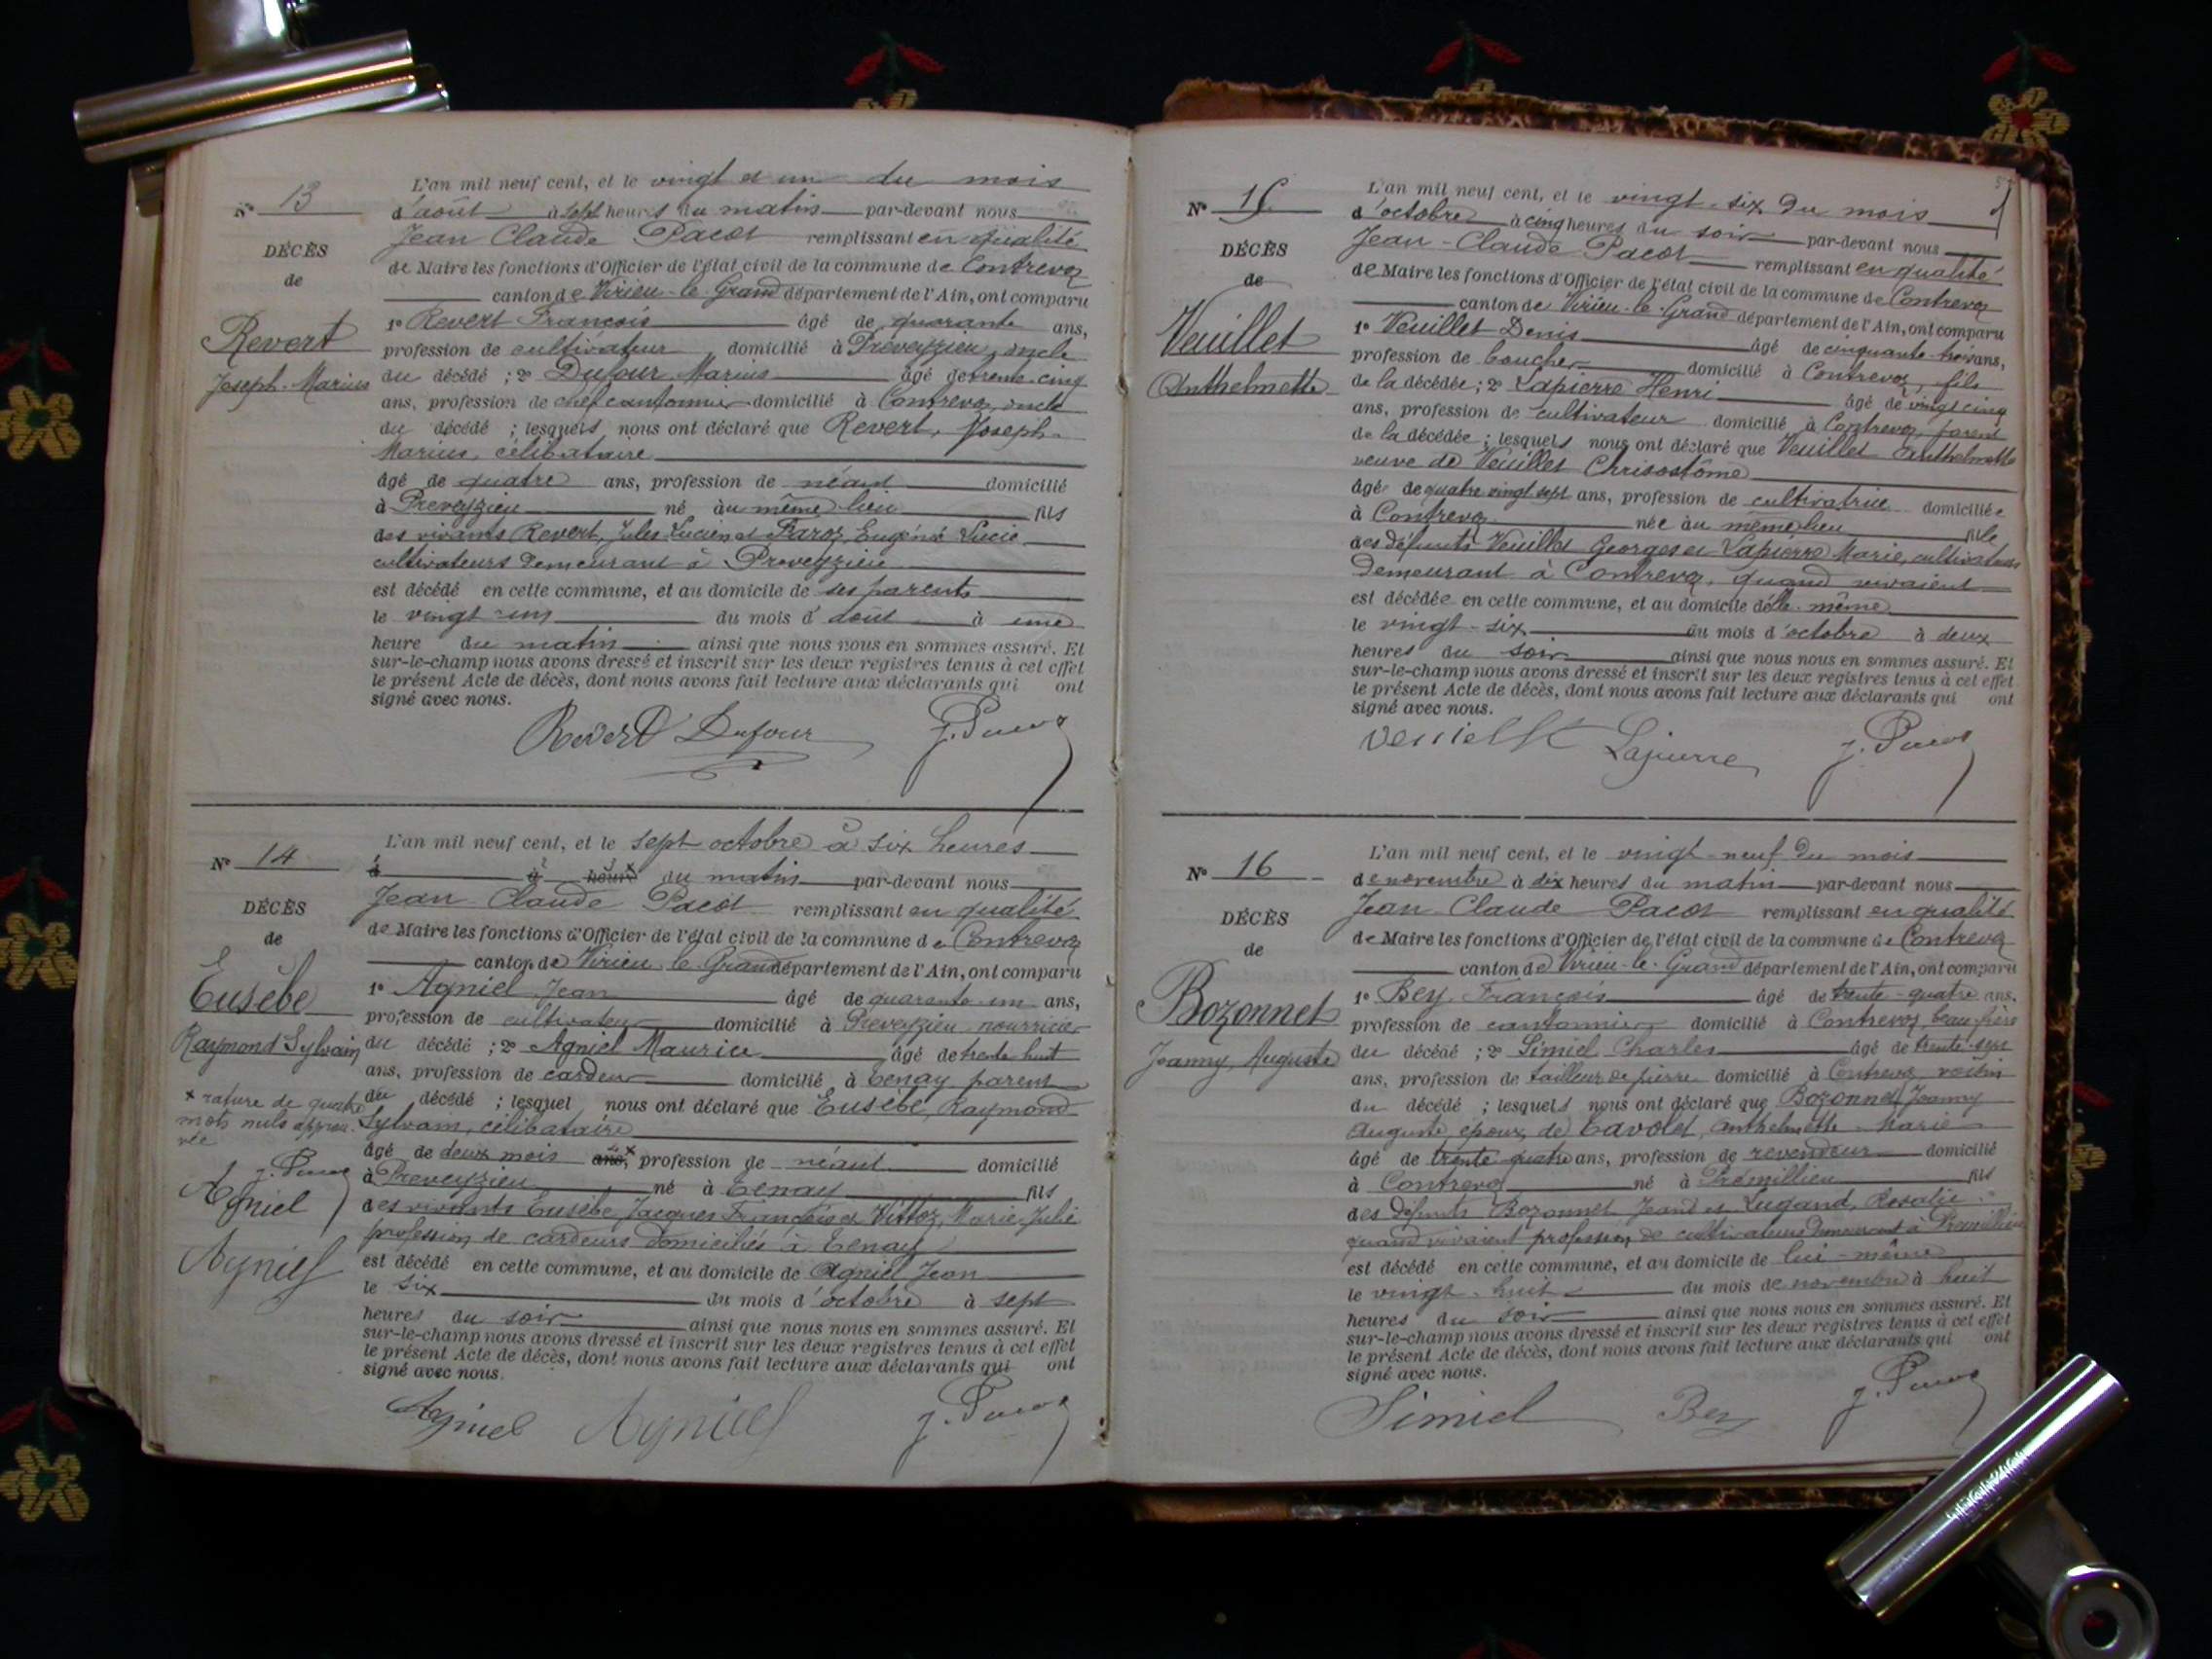 N° 13
DÉCÈS
de
Revert
Joseph-Marius
L'an mil neuf cent, et le vingt et un du mois
d'août à sept heures du matin par-devant nous
Jean Claude Pacot remplissant en qualité
de Maire les fonctions d'Officier de l'état civil de la commune de Contrevoz
canton de Virieu-le-Grand département de l'Ain, ont comparu
1° Revert François âgé de quarante ans,
profession de cultivateur domicilié à Préveyzieu, oncle
du décédé ; 2° Dufour Marius âgé de trente-cinq
ans, profession de chef cantonnier domicilié à Contrevoz, oncle
du décédé ; lesquels nous ont déclaré que Revert, Joseph-
Marius, célibataire
âgé de quatre ans, profession de néant domicilié
à Preveyzieu né au même lieu fils
des vivants Revert, Jules Lucien et Faroz, Eugénie Lucie
cultivateurs demeurant à Preveyzieu
est décédé en cette commune, et au domicile de ses parents
le vingt-un du mois d'août à une
heure du matin ainsi que nous nous en sommes assuré. Et
sur-le-champ nous avons dressé et inscrit sur les deux registres tenus à cet effet
le présent Acte de décès, dont nous avons fait lecture aux déclarants qui ont
signé avec nous.
Revert Dufour J. Pacot
N° 14
DÉCÈS
de
Eusèbe
Raymond Sylvain
x rature de quatre
mots nuls approu-
vée
J. Pacot
Agniel
Agniel
L'an mil neuf cent, et le sept octobre à six heures
à à heures du matin par-devant nous
Jean Claude Pacot remplissant en qualité
de Maire les fonctions d'Officier de l'état civil de la commune de Contrevoz
canton de Virieu-le-Grand département de l'Ain, ont comparu
1° Agniel Jean âgé de quarante un ans,
profession de cultivateur domicilié à Preveyzieu nourricier
du décédé ; 2° Agniel Maurice âgé de trente huit
ans, profession de cardeur domicilié à Tenay parent
du décédé ; lesquel nous ont déclaré que Eusèbe, Raymond
Sylvain, célibataire
âgé de deux mois ans, profession de néant domicilié
à Preveyzieu né à Tenay fils
des vivants Eusèbe, Jacques François et Vittoz, Marie Julie
profession de cardeurs domiciliés à Tenay
est décédé en cette commune, et au domicile de Agniel Jean
le six du mois d'octobre à sept
heures du soir ainsi que nous nous en sommes assuré. Et
sur-le-champ nous avons dressé et inscrit sur les deux registres tenus à cet effet
le présent Acte de décès, dont nous avons fait lecture aux déclarants qui ont
signé avec nous.
Agniel Agniel J. Pacot
N° 15
DÉCÈS
de
Veuillet
Anthelmette
L'an mil neuf cent, et le vingt-six du mois
d'octobre à cinq heures du soir par-devant nous
Jean-Claude Pacot remplissant en qualité
de Maire les fonctions d'Officier de l'état civil de la commune de Contrevoz
canton de Virieu-le-Grand département de l'Ain, ont comparu
1° Veuillet Denis âgé de cinquante-trois ans,
profession de boucher domicilié à Contrevoz, fils
de la décédée ; 2° Lapierre Henri âgé de vingt cinq
ans, profession de cultivateur domicilié à Contrevoz, parent
de la décédée ; lesquels nous ont déclaré que Veuillet Anthelmette
veuve de Veuillet Chrisostôme
âgée de quatre vingt sept ans, profession de cultivatrice domiciliée
à Contrevoz née au même lieu fille
des défunts Veuillet Georges et Lapierre Marie, cultivateurs
demeurant à Contrevoz, quand vivaient
est décédée en cette commune, et au domicile d'elle-même
le vingt-six du mois d'octobre à deux
heures du soir ainsi que nous nous en sommes assuré. Et
sur-le-champ nous avons dressé et inscrit sur les deux registres tenus à cet effet
le présent Acte de décès, dont nous avons fait lecture aux déclarants qui ont
signé avec nous.
Lapierre J. Pacot
N° 16
DÉCÈS
de
Bozonnet
Joanny, Auguste
L'an mil neuf cent, et le vingt-neuf du mois
de novembre à dix heures du matin par-devant nous
Jean Claude Pacot remplissant en qualité
de Maire les fonctions d'Officier de l'état civil de la commune de Contrevoz
canton de Virieu-le-Grand département de l'Ain, ont comparu
1° Bey, François âgé de trente-quatre ans,
profession de cantonnier domicilié à Contrevoz, beau frère
du décédé ; 2° Simiel Charles âgé de trente-sept
ans, profession de tailleur de pierre domicilié à Contrevoz, voisin
du décédé ; lesquels nous ont déclaré que Bozonnet, Joanny
Auguste époux de Tavolet, Anthelmette Marie
âgé de trente quatre ans, profession de revendeur domicilié
à Contrevoz né à Prémillieu fils
des défunts Bozonnet Jean et Lugand, Rosalie
quand vivaient profession de cultivateurs demeurant à Prémillieu
est décédé en cette commune, et au domicile de lui-même
le vingt-huit du mois de novembre à huit
heures du soir ainsi que nous nous en sommes assuré. Et
sur-le-champ nous avons dressé et inscrit sur les deux registres tenus à cet effet
le présent Acte de décès, dont nous avons fait lecture aux déclarants qui ont
signé avec nous.
Simiel Bey J. Pacot